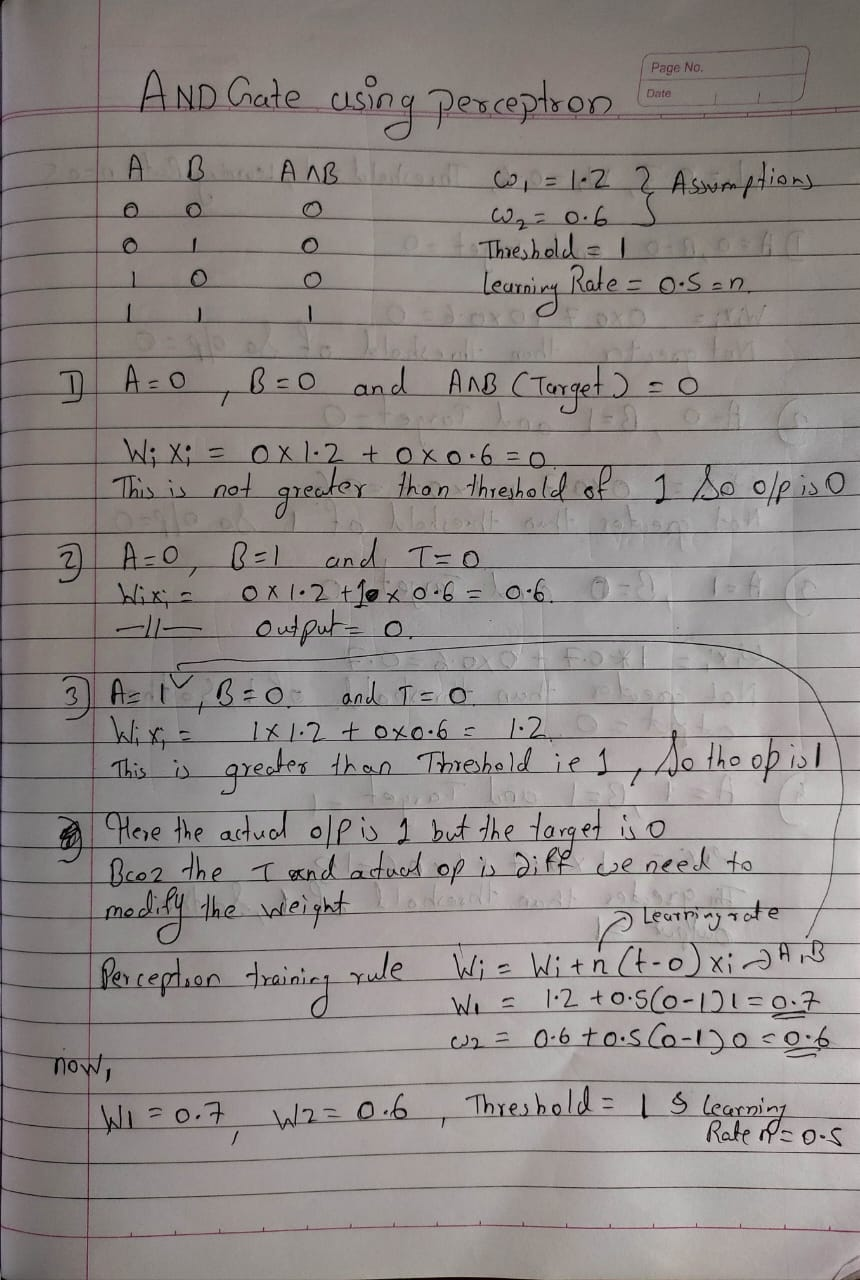 Page No.
Date
AND Gate using perceptron
A B A∧B
0 0 0
0 1 0
1 0 0
1 1 1
ω₁ = 1.2 } Assumptions
ω₂ = 0.6
Threshold = 1
Learning Rate = 0.5 = n
1) A=0, B=0 and A∧B (Target) = 0
Wi Xi = 0 x 1.2 + 0 x 0.6 = 0
This is not greater than threshold of 1 So o/p is 0
2) A=0, B=1 and T=0
Wixi = 0 x 1.2 + 1 x 0.6 = 0.6.
—11— output = 0.
3) A=1, B=0. and T=0.
Wi xi = 1x1.2 + 0x0.6 = 1.2
This is greater than Threshold ie 1, So the op is 1
Here the actual o/p is 1 but the target is 0
Bcoz the T and actual op is Diff we need to
modify the weight
Learning rate
Perceptron training rule Wi = Wi + n (t-o) xi → A,B
W1 = 1.2 + 0.5(0-1)1 = 0.7
ω2 = 0.6 + 0.5(0-1)0 = 0.6
now,
W1 = 0.7, W2 = 0.6, Threshold = 1 & Learning
Rate n = 0.5